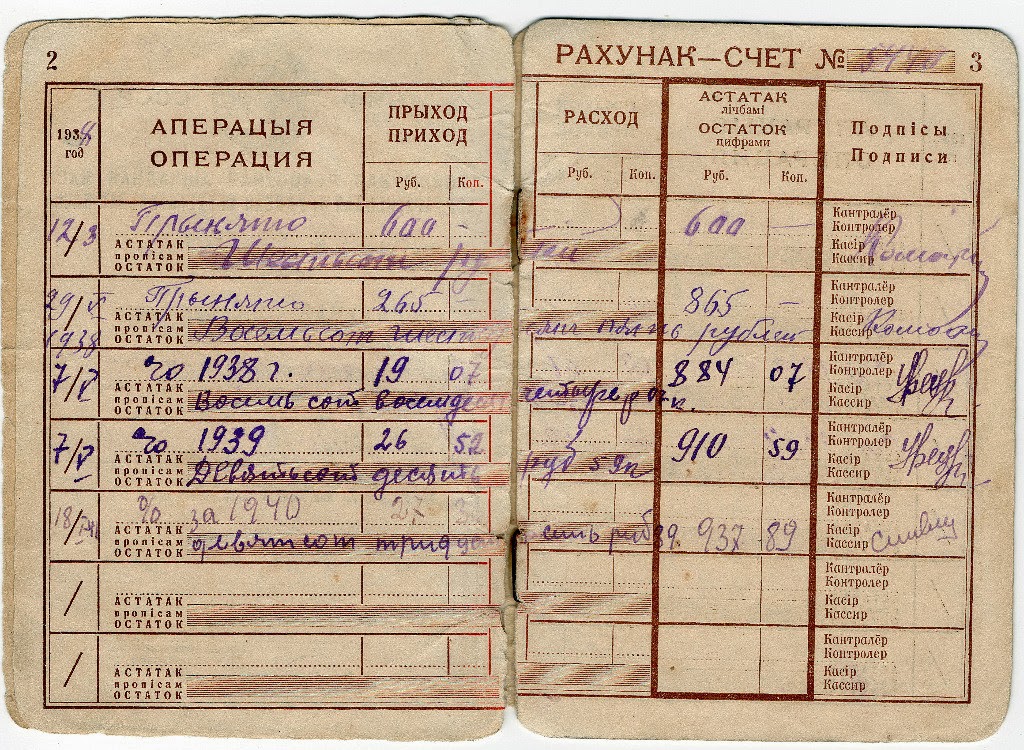 2
РАХУНАК—СЧЕТ № 3
1938 год
АПЕРАЦЫЯ
ОПЕРАЦИЯ
ПРЫХОД
ПРИХОД
Руб. Коп.
РАСХОД
Руб. Коп.
АСТАТАК
лічбамі
ОСТАТОК
цифрами
Руб. Коп.
Подпісы
Подписи
12/3 Прынято 600 - 600 -
АСТАТАК
пропісам
ОСТАТОК
Шестьсот
Кантралёр
Контролер
Касір
Кассир
29/V Прынято 265 - 865 -
1938
АСТАТАК
пропісам
ОСТАТОК
Восемьсот шест пять рублей
Кантралёр
Контролер
Касір
Кассир
7/V % 1938 г. 19 07 884 07
АСТАТАК
пропісам
ОСТАТОК
Восемь сот восемдесят четыре р 07 к.
Кантралёр
Контролер
Касір
Кассир
7/V % 1939 26 52 910 59
АСТАТАК
пропісам
ОСТАТОК
Девятьсот десять руб 59к
Кантралёр
Контролер
Касір
Кассир
18 % за 1940 27 937 89
АСТАТАК
пропісам
ОСТАТОК
девятсот тридцать семь руб 89
Кантралёр
Контролер
Касір
Кассир
/
АСТАТАК
пропісам
ОСТАТОК
Кантралёр
Контролер
Касір
Кассир
/
АСТАТАК
пропісам
ОСТАТОК
Кантралёр
Контролер
Касір
Кассир